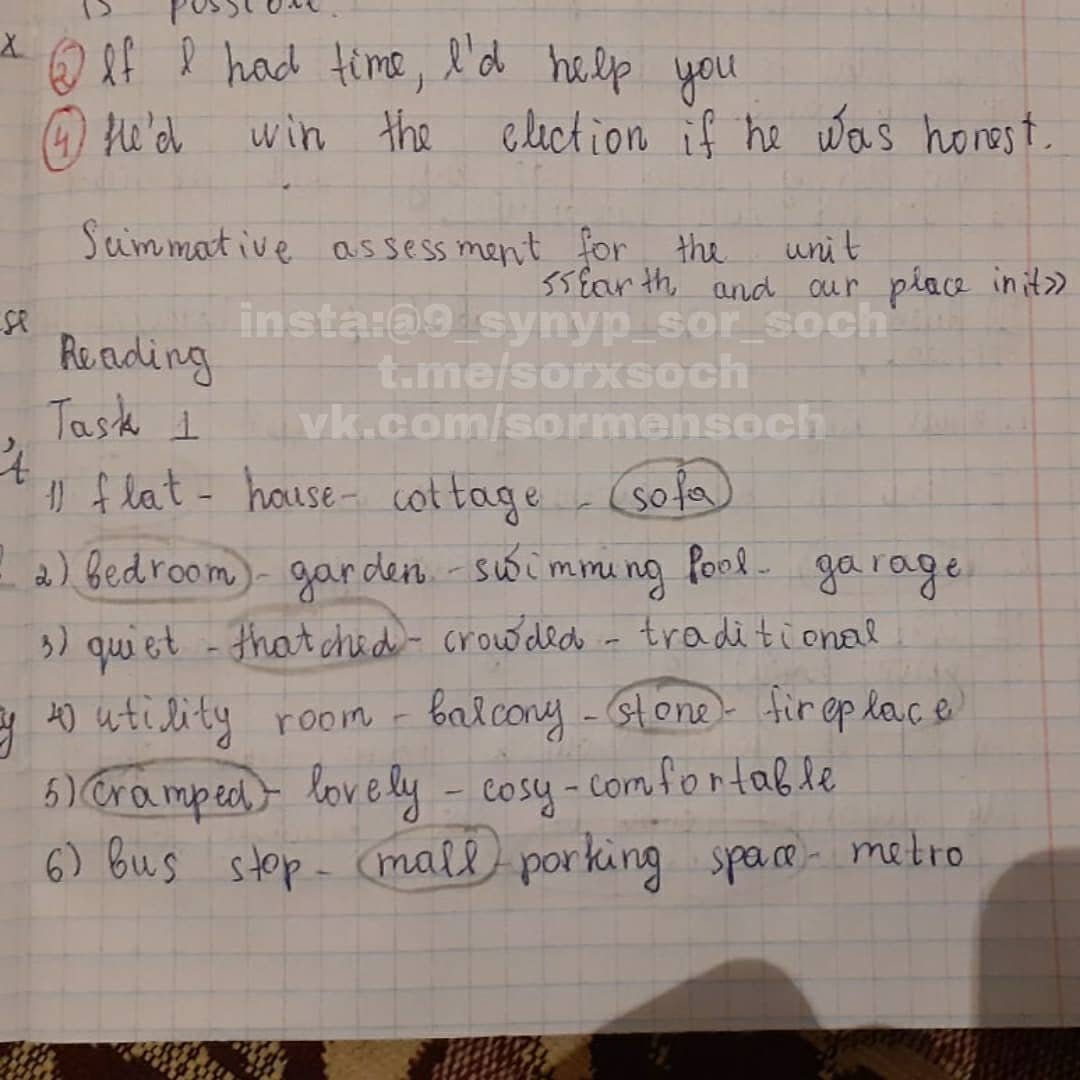 is possible.
x ② If I had time, I'd help you
④ He'd win the election if he was honest.
Summative assessment for the unit
<<Earth and our place in it>>
se
insta:@9_synyp_sor_soch
Reading
t.me/sorxsoch
Task 1
vk.com/sormensoch
't
1) flat - house - cottage - sofa
2) bedroom - garden - swimming Pool - garage
3) quiet - thatched - crowded - traditional
y 4) utility room - balcony - stone - fireplace
5) cramped - lovely - cosy - comfortable
6) bus stop - mall - porking space - metro